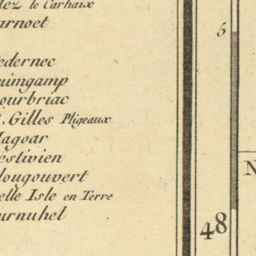 lez le Carhaix
arnoet
edernec
uimgamp
ourbriac
. Gilles Pligeaux
lagoar
estivien
lougouvert
elle Isle en Terre
urnuhel
5
N
48